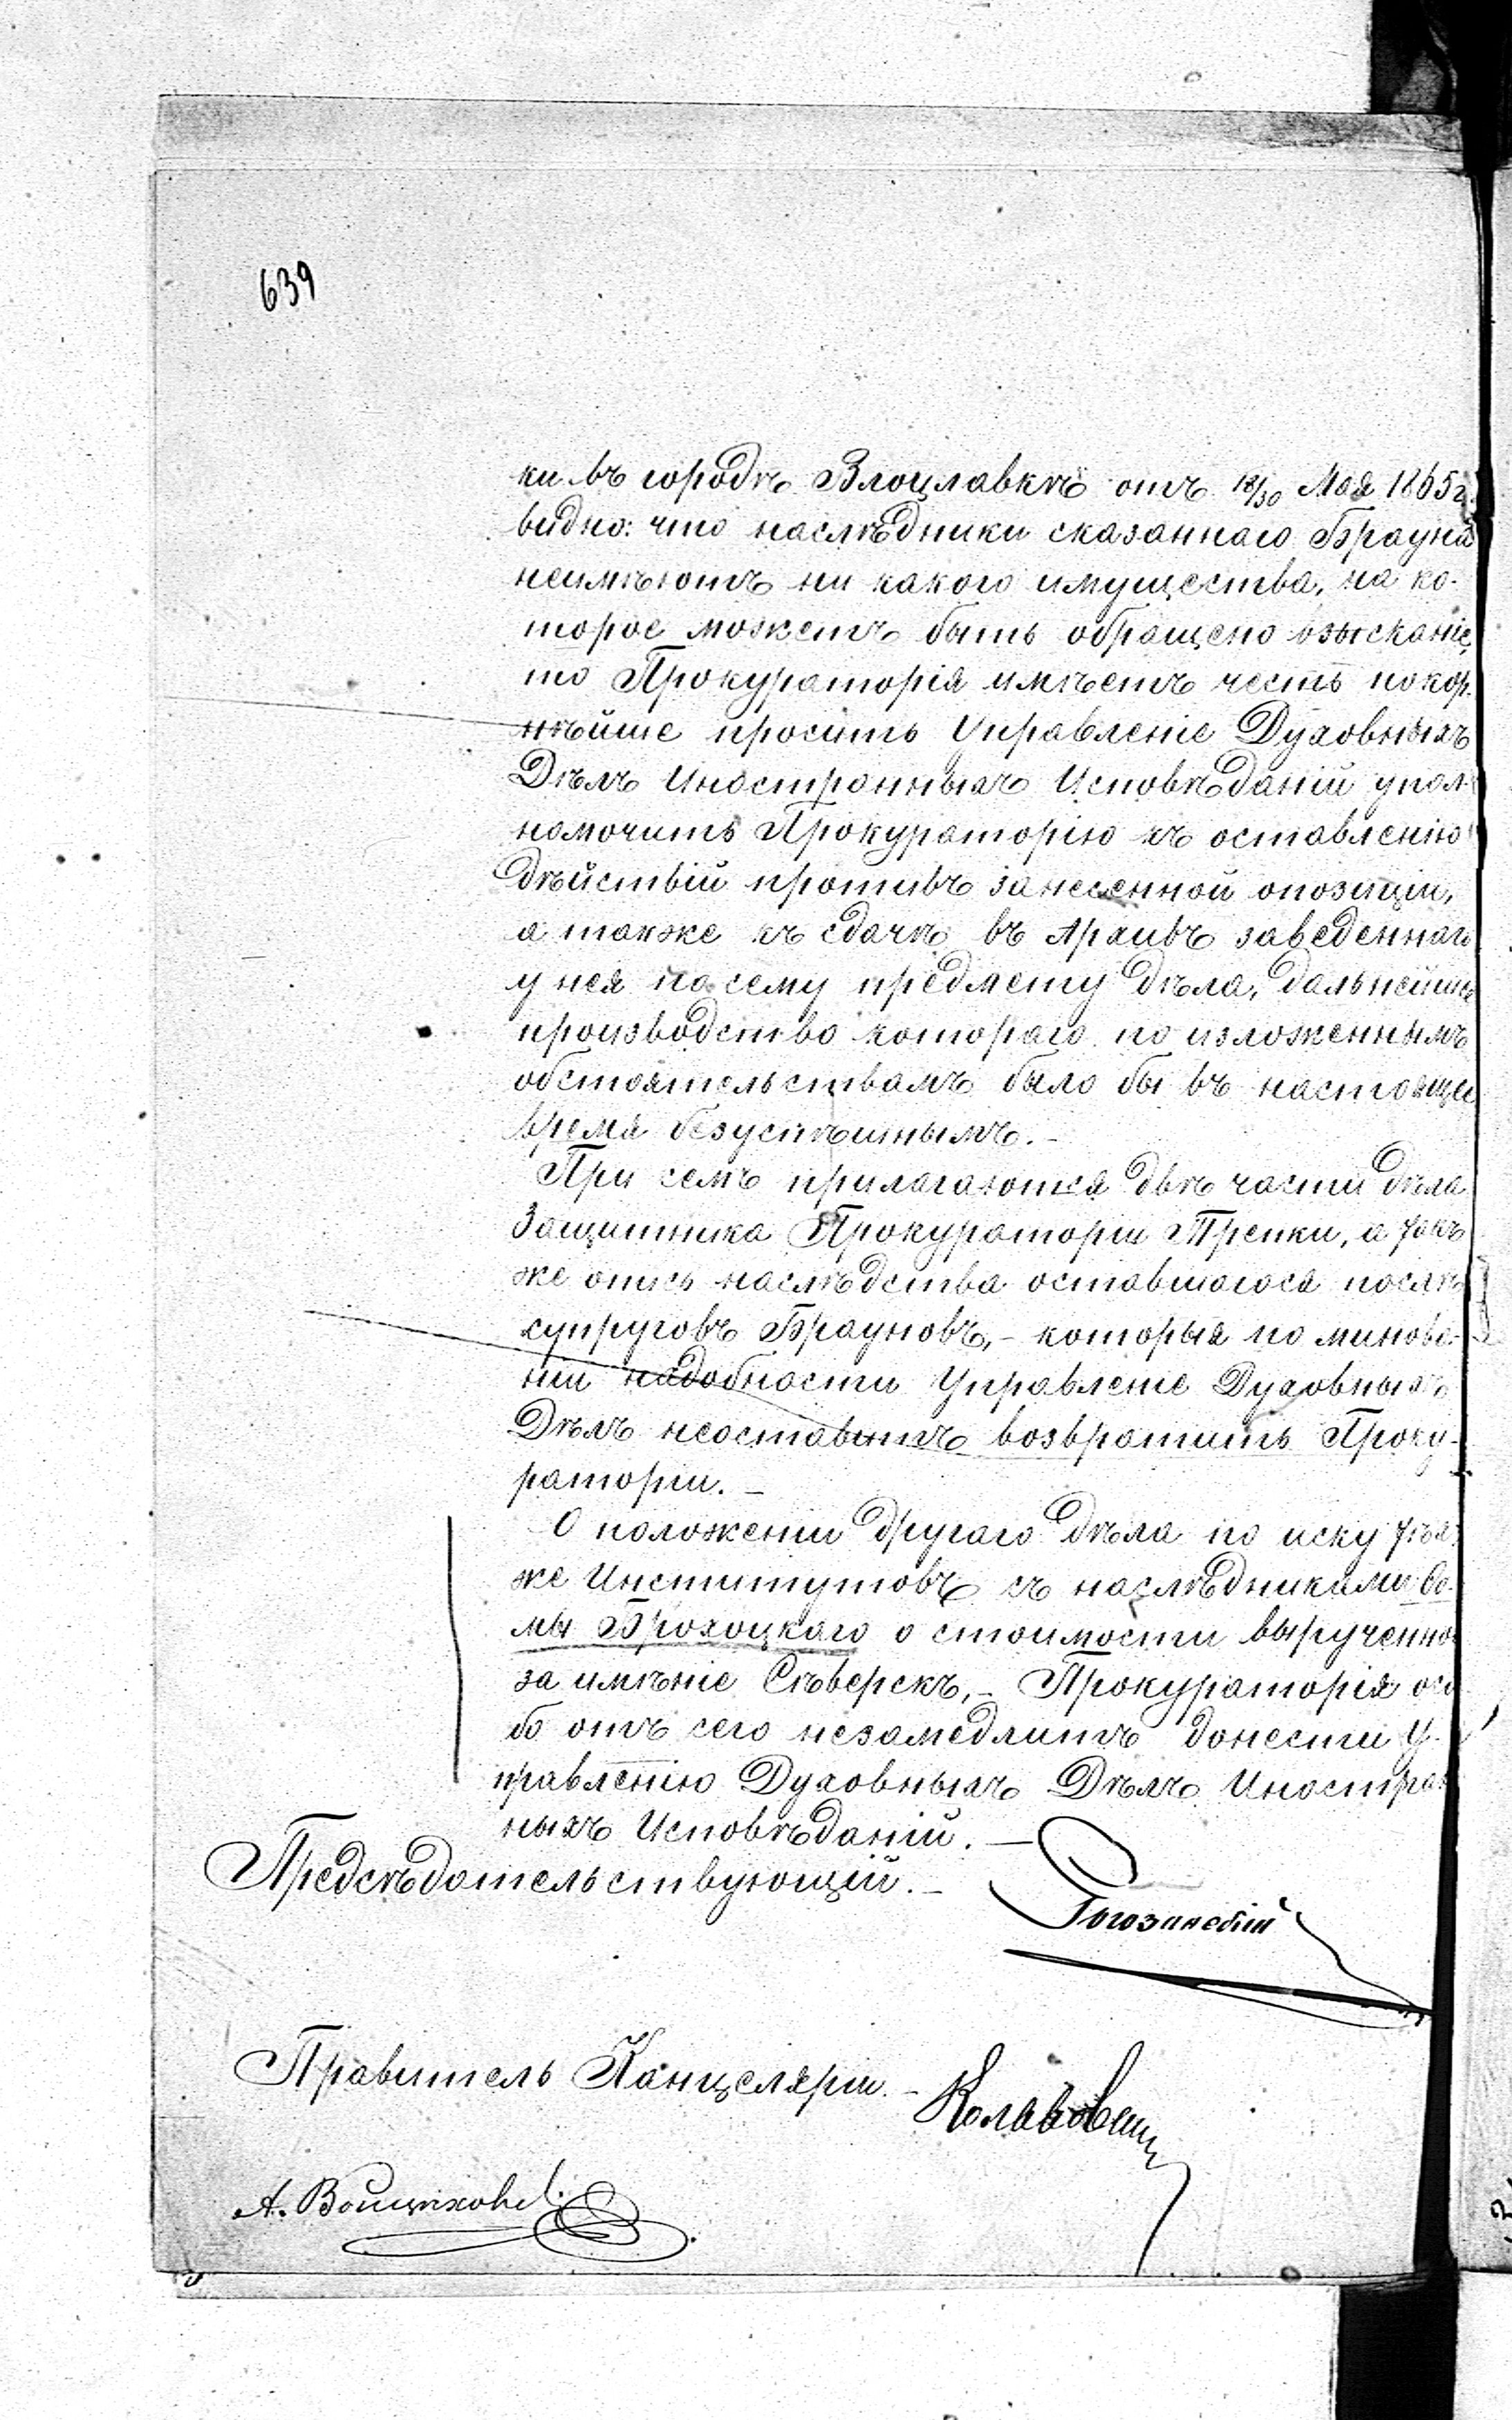 639
ки въ городѣ Влоцлавкѣ отъ 18/30 Мая 1865г.
видно: что наслѣдники сказаннаго Брауна
неимѣютъ ни какого имущества, на ко-
торое можетъ быть обращено взысканіе,
то Прокураторія имѣетъ честь покор-
нѣйше просить Управленіе Духовныхъ
Дѣлъ Иностранныхъ Исповѣданій упол-
номочить Прокураторію къ оставленію
дѣйствій противъ занесенной опозиціи,
а также къ сдачѣ въ Архивъ заведеннаго
у нея по сему предмету дѣла, дальнейшее
производство котораго по изложеннымъ
обстоятельствамъ было бы въ настоящее
время безуспѣшнымъ. –
При семъ прилагаются двѣ части дѣла
Защитника Прокураторіи Трепки, а такъ
же опись наслѣдства оставшагося послѣ
супруговъ Брауновъ, – которыя по минова-
ніи надобности Управленіе Духовныхъ
Дѣлъ неоставитъ возвратить Проку-
раторіи. –
О положеніи другаго дѣла по иску тѣхъ
же Институтовъ съ наслѣдниками Ѳо-
мы Прохоцкаго о стоимости вырученной
за имѣніе Сѣверскъ, – Прокураторія осо-
бо отъ сего незамедлитъ донести У-
правленію Духовныхъ Дѣлъ Иностран
ныхъ Исповѣданій. –
Предсѣдательствующій. –
Правитель Канцеляріи. –
А.